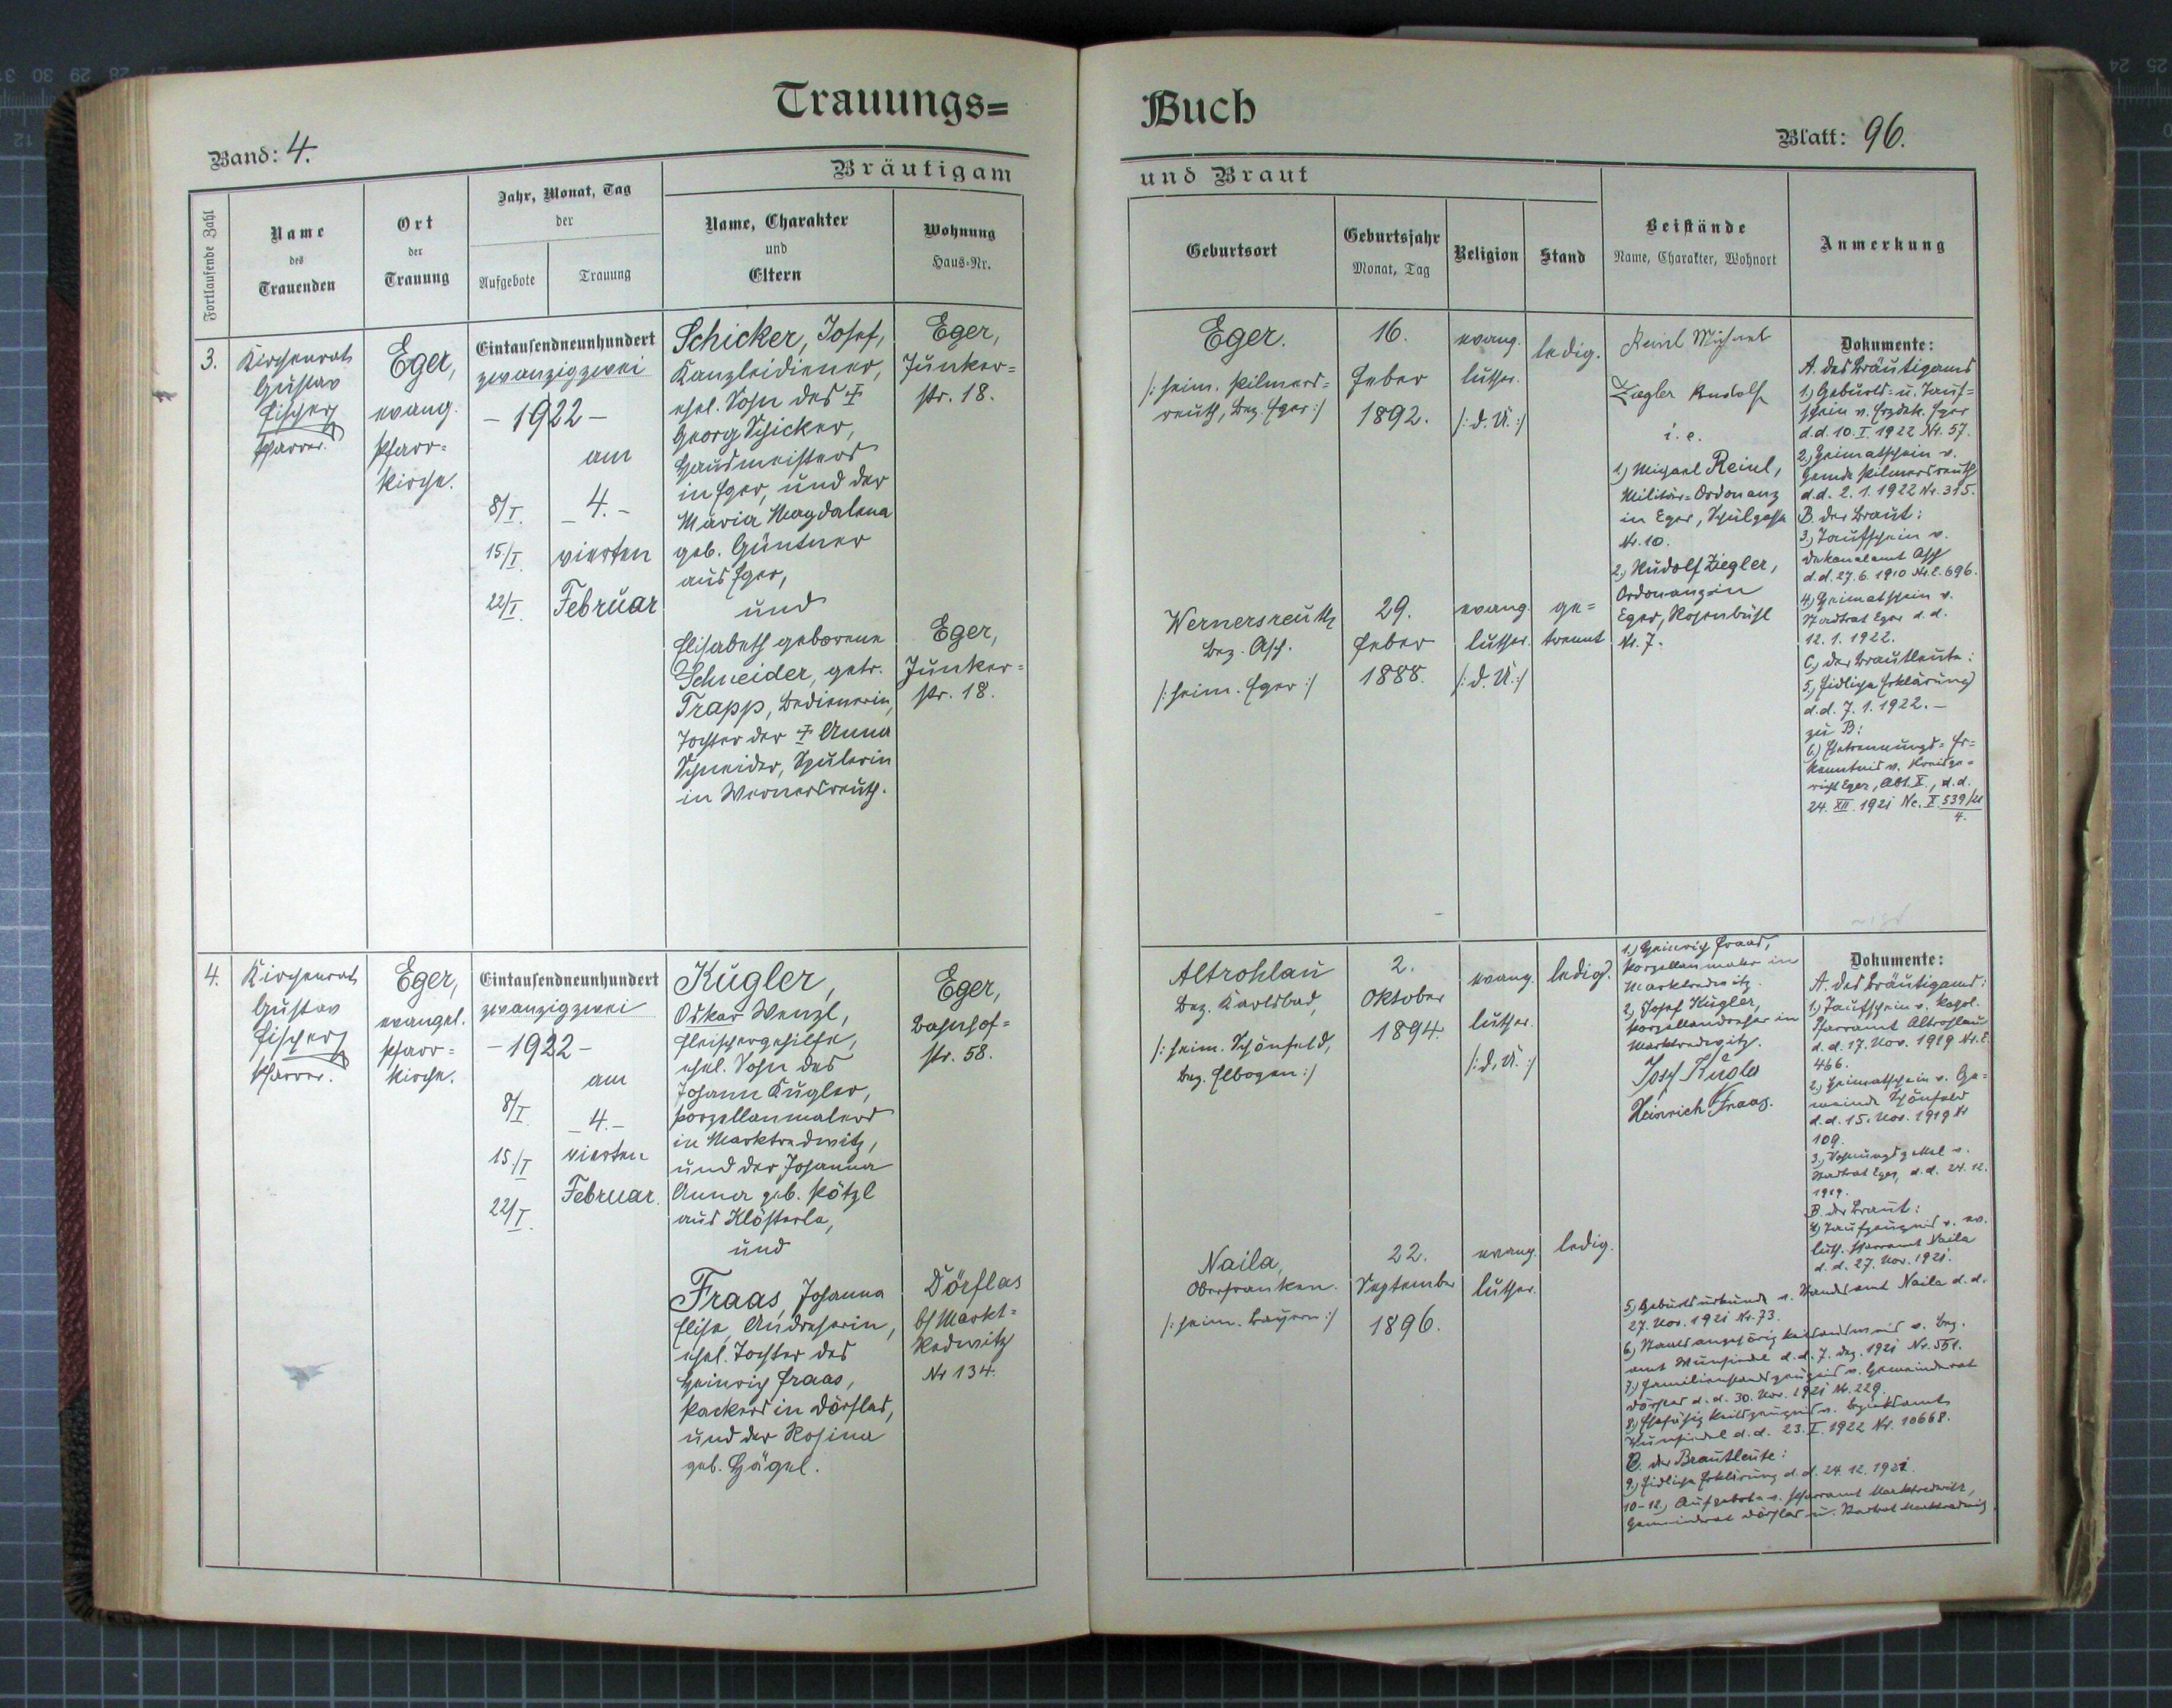 Trauungs=
Buch
Band: 4.
Blatt: 96.
Bräutigam
und Braut
Fortlaufende Zahl
Name
des
Trauenden
Ort
der
Trauung
Jahr, Monat, Tag
der
Aufgebote
Trauung
Name, Charakter
und
Eltern
Wohnung
Haus=Nr.
Geburtsort
Geburtsjahr
Monat, Tag
Religion
Stand
Beistände
Name, Charakter, Wohnort
Anmerkung
3.
Kirchenrat
Gustav
Fischer
Pfarrer.
Eger,
evang.
Pfarr=
kirche.
Eintausendneunhundert
zwanzigzwei
- 1922 -
am
8/I.
- 4. -
15./I.
vierten
22/I.
Februar
Schicker, Josef,
Kanzleidiener,
ehel. Sohn des †
Georg Schicker,
Hausmeisters
in Eger, und der
Maria Magdalena
geb. Güntner
aus Eger,
und
Elisabeth geborene
Schneider, getr.
Trapp, Bedienerin,
Tochter der † Anna
Schneider, Spulerin
in Wernersreuth.
Eger,
Junker=
str. 18.
Eger,
Junker=
str. 18.
Eger.
/: heim. Pilmers=
reuth, Bez. Eger :/
16.
Feber
1892.
evang.
luther.
/: d. Ü. :/
ledig.
Wernersreuth
Bez. Asch.
/: heim. Eger :/
29.
Feber
1888.
evang.
luther.
/: d. Ü. :/
ge=
trennt
Reinl Michael
Ziegler Rudolf
i. e.
1) Michael Reinl,
Militär=Ordonanz
in Eger, Schulgasse
Nr. 10.
2.) Rudolf Ziegler,
Ordonanz in
Eger, Rosenbühl
Nr. 7.
Dokumente:
A. des Bräutigams
1.) Geburts= u. Tauf=
schein v. Erzdek. Eger
d.d. 10. I. 1922 Nr. 57.
2.) Heimatschein v.
Gemde Pilmersreuth
d.d. 2. 1. 1922 Nr. 315.
B. der Braut:
3.) Taufschein v.
Dekanalamt Asch
d.d. 27. 6. 1910 Nr. E. 696.
4.) Heimatschein v.
Stadtrat Eger d.d.
12. 1. 1922.
C.) der Brautleute:
5.) Eidliche Erklärung
d.d. 7. 1. 1922. -
zu B:
6.) Getrennungs= Er=
kenntnis v. Kreisge=
richt Eger, Abt. X., d.d.
24. XII. 1921 Nc. X 539/21
4.
4.
Kirchenrat
Gustav
Fischer
Pfarrer.
Eger,
evangel.
Pfarr=
kirche.
Eintausendneunhundert
zwanzigzwei
- 1922 -
am
8/I.
- 4. -
15./I
vierten
22/I.
Februar.
Kugler,
Oskar Wenzl,
Fleischergehilfe,
ehel. Sohn des
Johann Kugler,
Porzellanmalers
in Marktredwitz,
und der Johanna
Anna geb. Pötzl
aus Klösterle,
und
Fraas, Johanna
Elise, Andreherin,
ehel. Tochter des
Heinrich Fraas,
Packers in Dörflas,
und der Rosina
geb. Hägel.
Eger,
Bahnhof=
str. 58.
Dörflas
b/ Markt=
Redwitz
Nr 134.
Altrohlau
Bez. Karlsbad,
/: heim. Schönfeld,
Bez. Elbogen :/
2.
Oktober
1894.
evang.
luther.
/: d. Ü. :/
ledig.
Naila,
Oberfranken.
/: heim. Bayern :/
22.
September
1896.
evang.
luther.
ledig.
1.) Heinrich Fraas,
Porzellanmaler in
Marktredwitz.
2.) Josef Kugler,
Porzellandreher in
Marktredwitz.
Josef Kugler
Heinrich Fraas.
Dokumente:
A. des Bräutigams:
1.) Taufschein v. kathol.
Pfarramt Altrohlau
d.d. 17. Nov. 1919 Nr. E.
466.
2.) Heimatschein v. Ge=
meinde Schönfeld
d.d. 15. Nov. 1919 Nr
109.
3.) Wohnungszettel v.
Stadtrat Eger, d.d. 24. 12.
1919.
B. der Braut:
4.) Taufzeugnis v. ev.
luth. Pfarramt Naila
d.d. 27. Nov. 1921.
5.) Geburtsurkunde v. Standesamt Naila d.d.
27. Nov. 1921 Nr. 73.
6.) Staatsangehörigkeitsausweis v. Bez.
amt Wunsiedel d.d. 7. Dez. 1921 Nr. 551.
7.) Familienstandszeugnis v. Gemeinderat
Dörflas d.d. 30. Nov. 1921 Nr. 229.
8.) Ehefähigkeitszeugnis v. Bezirksamt
Wunsiedel d.d. 23. I. 1922 Nr. 10668.
C. der Brautleute:
9.) Eidliche Erklärung d.d. 24. 12. 1921.
10-12.) Aufgebote v. Pfarramt Marktredwitz,
Gemeinderat Dörflas u. Stadtrat Marktredwitz